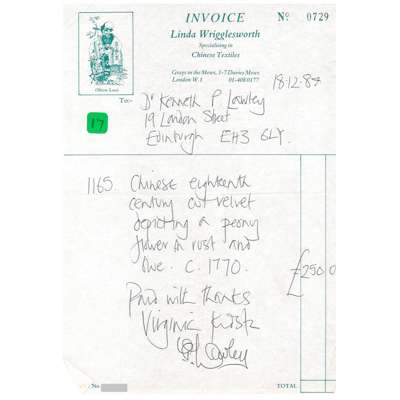 INVOICE
No. 0729
Linda Wrigglesworth
Specialising in
Chinese Textiles
Grays in the Mews, 1-7 Davies Mews
London W 1 01-408 0177
18.12.84
To:-
Dr Kenneth P Lawley
19 London Street
Edinburgh EH3 6LY.
17
1165 Chinese eighteenth
century cut velvet
depicting a peony
flower in rust and
c. 1770.
£250.0
Paid with thanks
Virginia
Lawley
No.
TOTAL